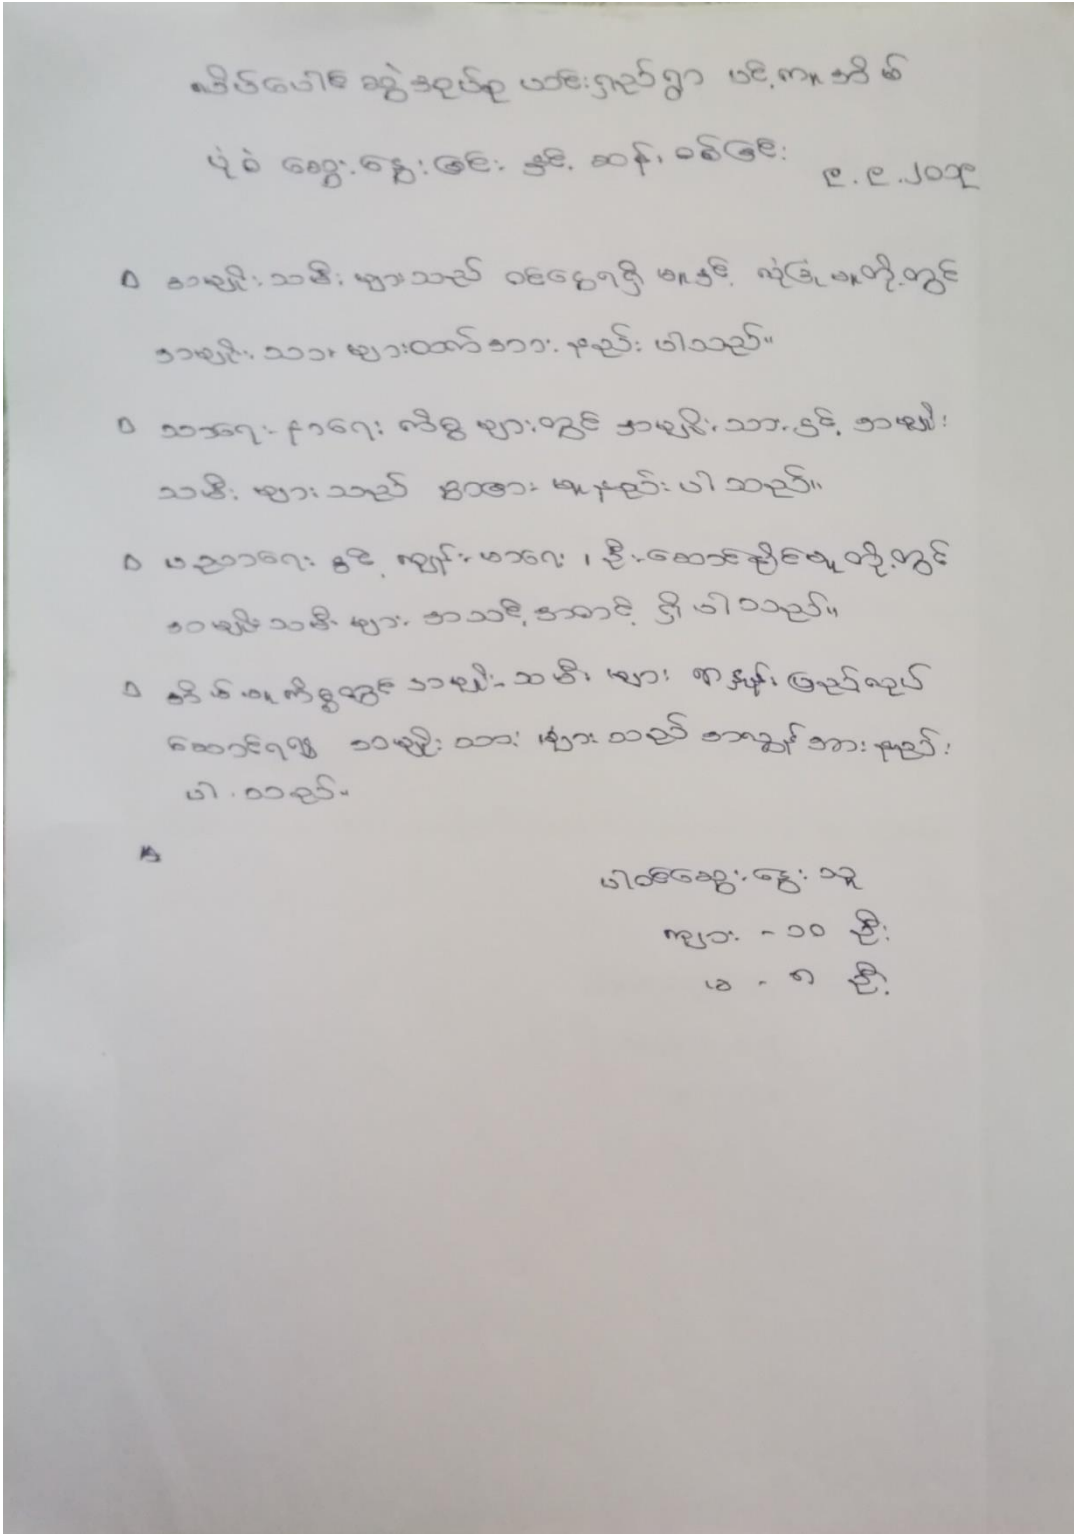 ပုံစံ ဆွေးနွေးခြင်း နှင့် ဆန်းစစ်ခြင်း
၉.၉.၂၀၁၃
အမျိုးသမီးများသည် ဝင်ငွေရရှိမှုနှင့် လုံခြုံမှုတို့တွင်
အမျိုးသားများထက်အားနည်းပါသည်။
သာရေးနာရေးကိစ္စများတွင် အမျိုးသားနှင့် အမျိုး
သမီးများသည် ခွဲခြားမှုနည်းပါသည်။
ပညာရေးနှင့် ကျန်းမာရေး၊ ဦးဆောင်နိုင်မှုတို့တွင်
အမျိုးသမီးများ အသင့်အတင့် ရှိပါသည်။
အိမ်မှုကိစ္စတွင် အမျိုးသမီးများ ရာနှုန်းပြည့်လုပ်
ဆောင်ရ၍ အမျိုးသားများသည် အလွန်အားနည်း
ပါသည်။
ပါဝင်ဆွေးနွေးသူ
ကျား - ၁၀ ဦး
မ - ၈ ဦး